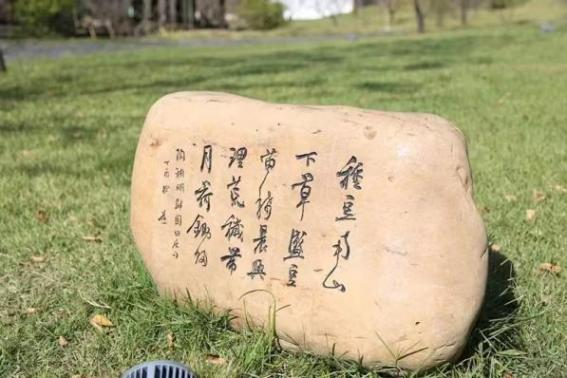 種豆南山
下草盛豆
苗稀晨興
理荒穢帶
月荷鋤歸
陶淵明歸園田居句
丁酉